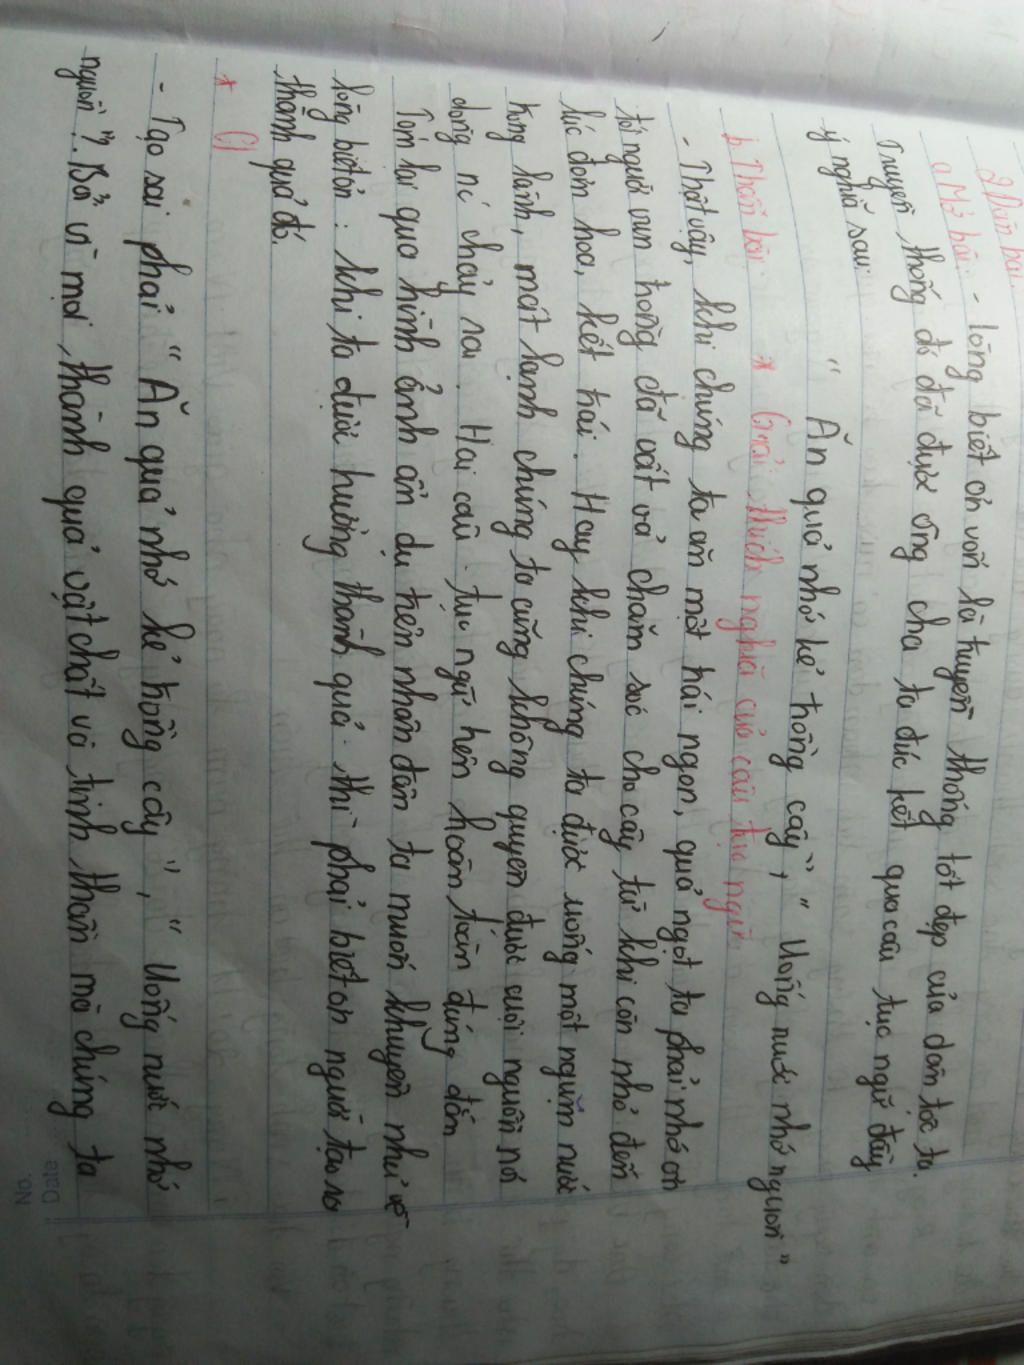 2 Dàn bài
a Mở bài: - Lòng biết ơn vốn là truyền thống tốt đẹp của dân tộc ta.
Truyền thống đó đã được ông cha ta đúc kết qua câu tục ngữ đầy
ý nghĩa sau:
" Ăn quả nhớ kẻ trồng cây", " Uống nước nhớ nguồn"
b. Thân bài: * Giải thích nghĩa của câu tục ngữ
- Thật vậy, khi chúng ta ăn một trái ngon, quả ngọt ta phải nhớ ơn
tới người vun trồng đã vất vả chăm sóc cho cây từ khi còn nhỏ đến
lúc đơm hoa, kết trái. Hay khi chúng ta được uống một ngụm nước
trong lành, mát lạnh chúng ta cũng không quyên được cuội nguồn nơi
dòng nc chảy ra. Hai câu tục ngữ trên hoàn toàn đúng đắn
Tóm lại qua hình ảnh ẩn dụ trên nhân dân ta muốn khuyên nhủ về
lòng biết ơn: khi ta được hưởng thành quả thì phải biết ơn người tạo ra
thành quả đó.
*
- Tạo sai phải " Ăn quả nhớ kẻ trồng cây", " Uống nước nhớ
nguồn"? Bởi vì mọi thành quả vật chất và tinh thần mà chúng ta
Date
No.